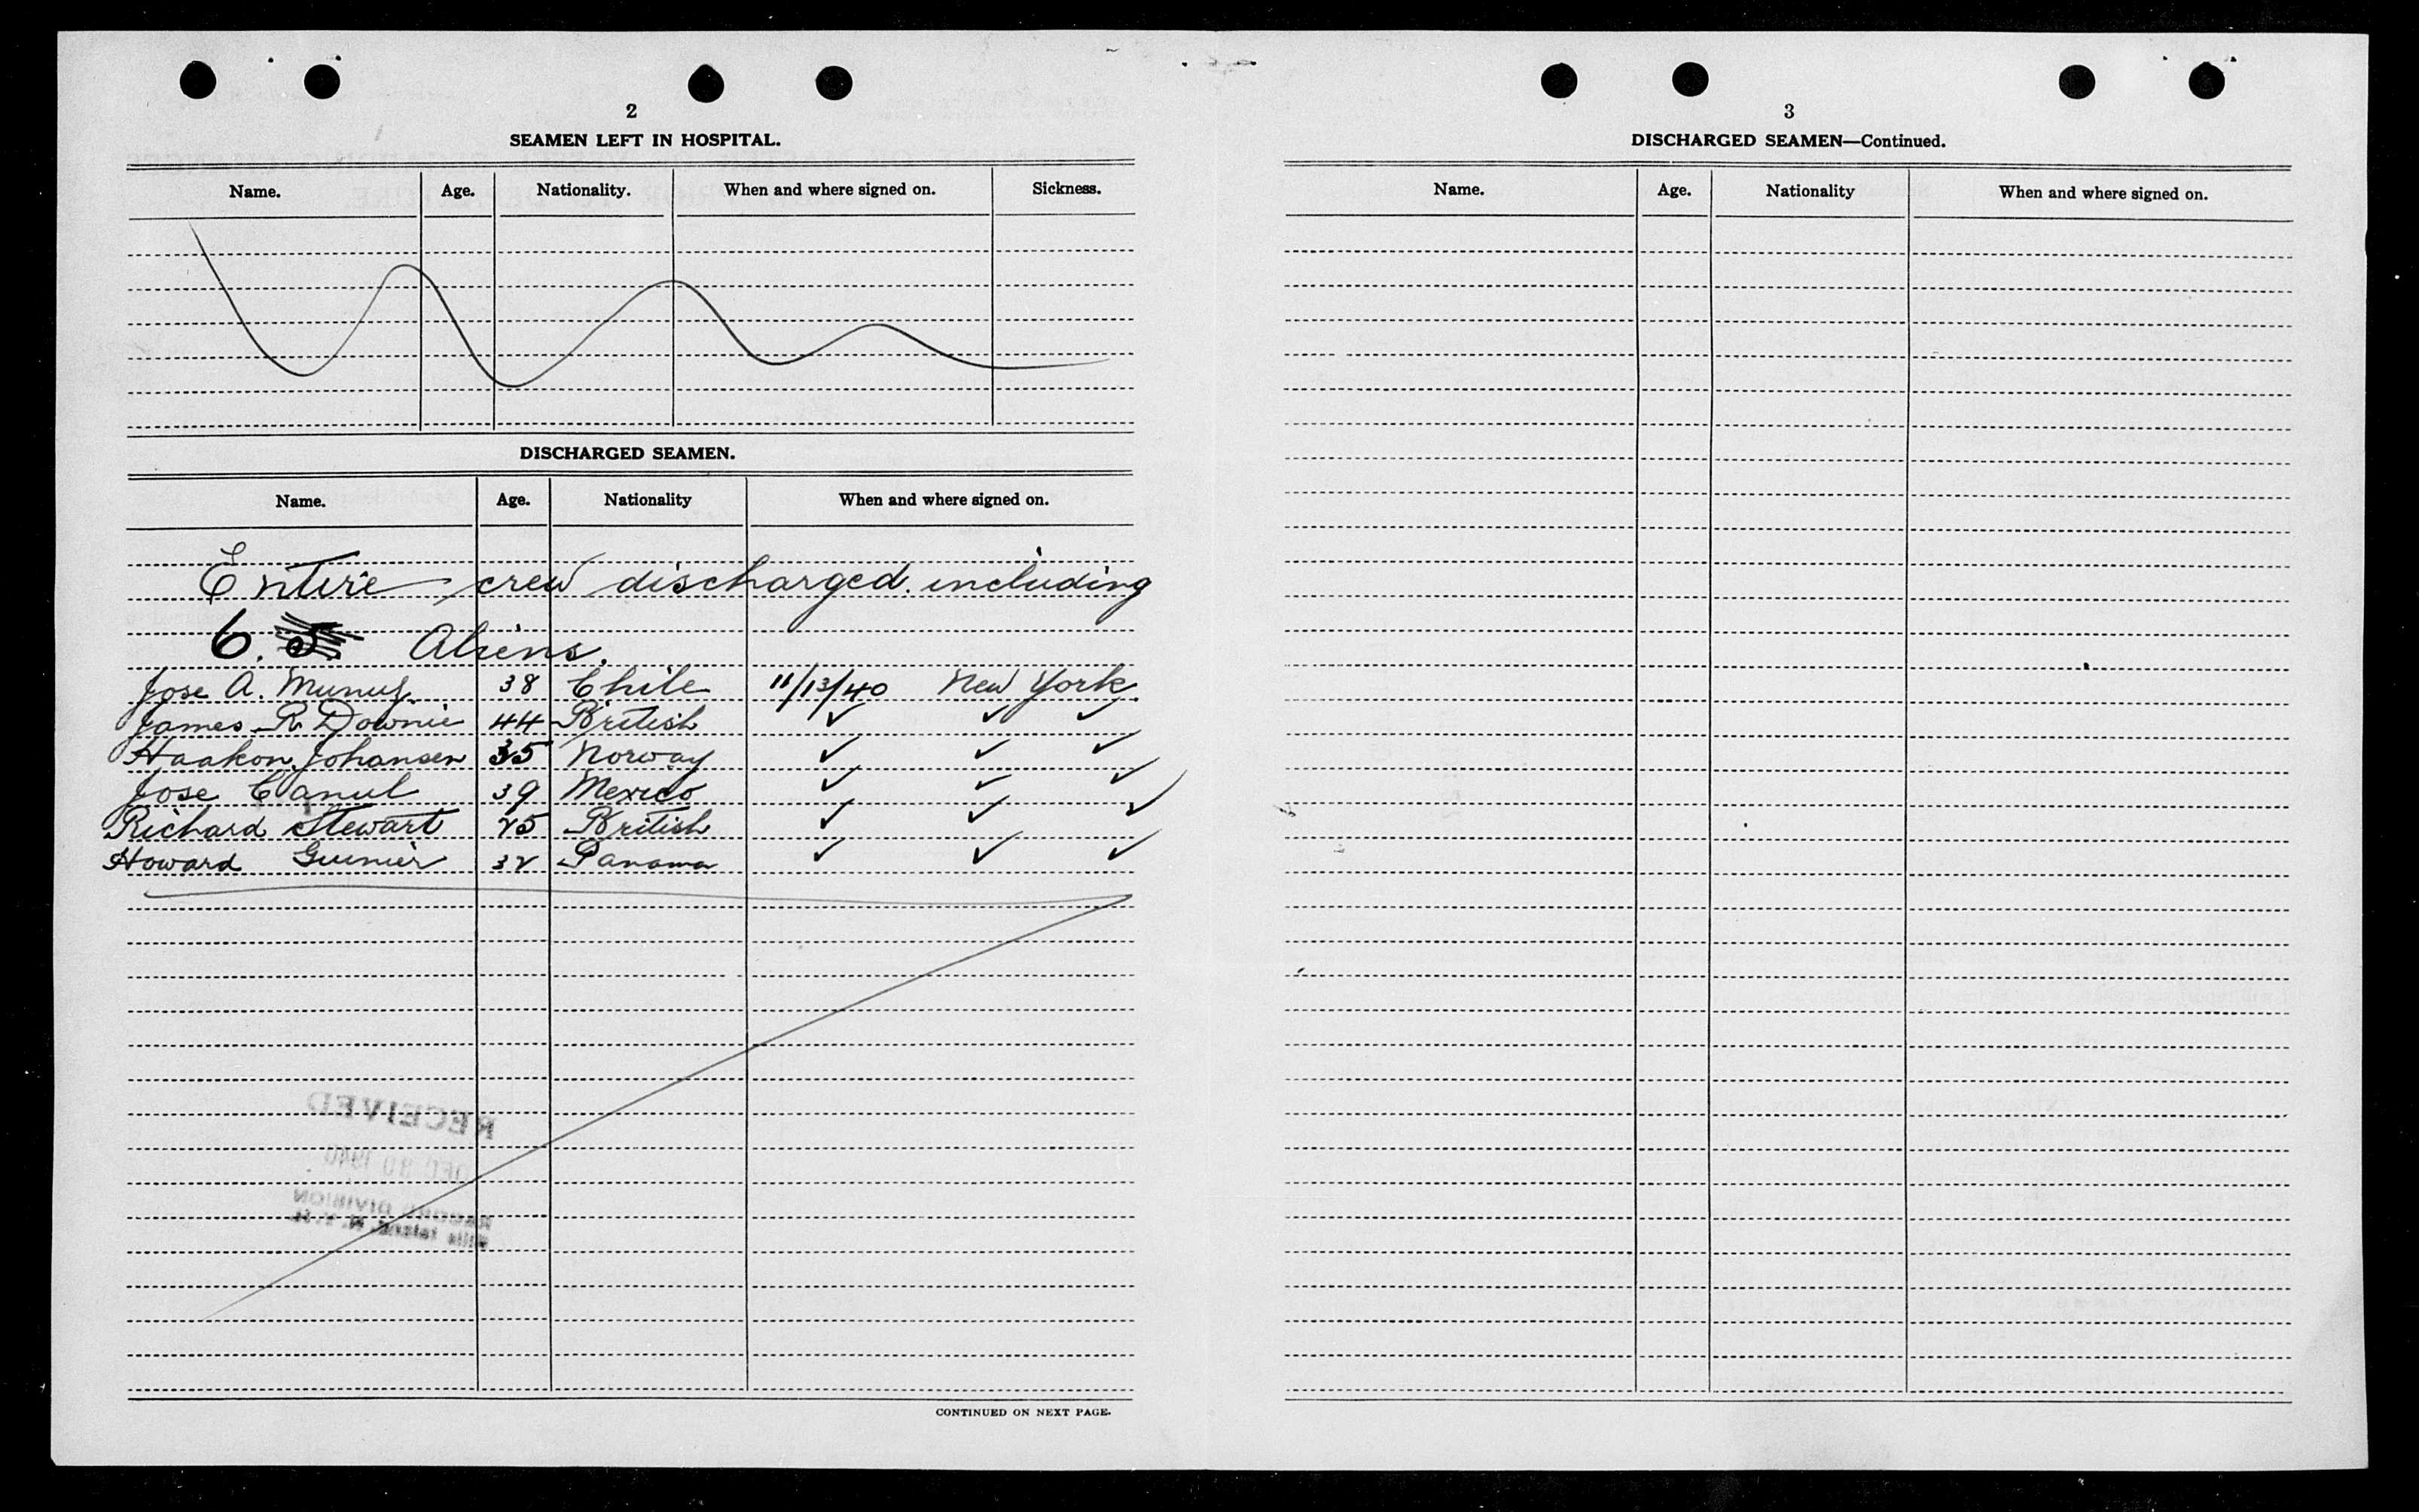 2
SEAMEN LEFT IN HOSPITAL.
Name. Age. Nationality. When and where signed on. Sickness.
DISCHARGED SEAMEN.
Name. Age. Nationality When and where signed on.
Entire crew discharged. including
6. 5. Aliens.
Jose A. 38 Chile 11/13/40 New York.
James R Downie 44 British ✓ ✓ ✓
Haakon Johansen 35 Norway ✓ ✓ ✓
Jose Canul 39 Mexico ✓ ✓ ✓
Richard Stewart 25 British ✓ ✓ ✓
Howard 32 Panama ✓ ✓ ✓
RECEIVED
DEC 30 1940
RECORD DIVISION
Ellis Island, N. Y. H.
CONTINUED ON NEXT PAGE.
3
DISCHARGED SEAMEN—Continued.
Name. Age. Nationality When and where signed on.